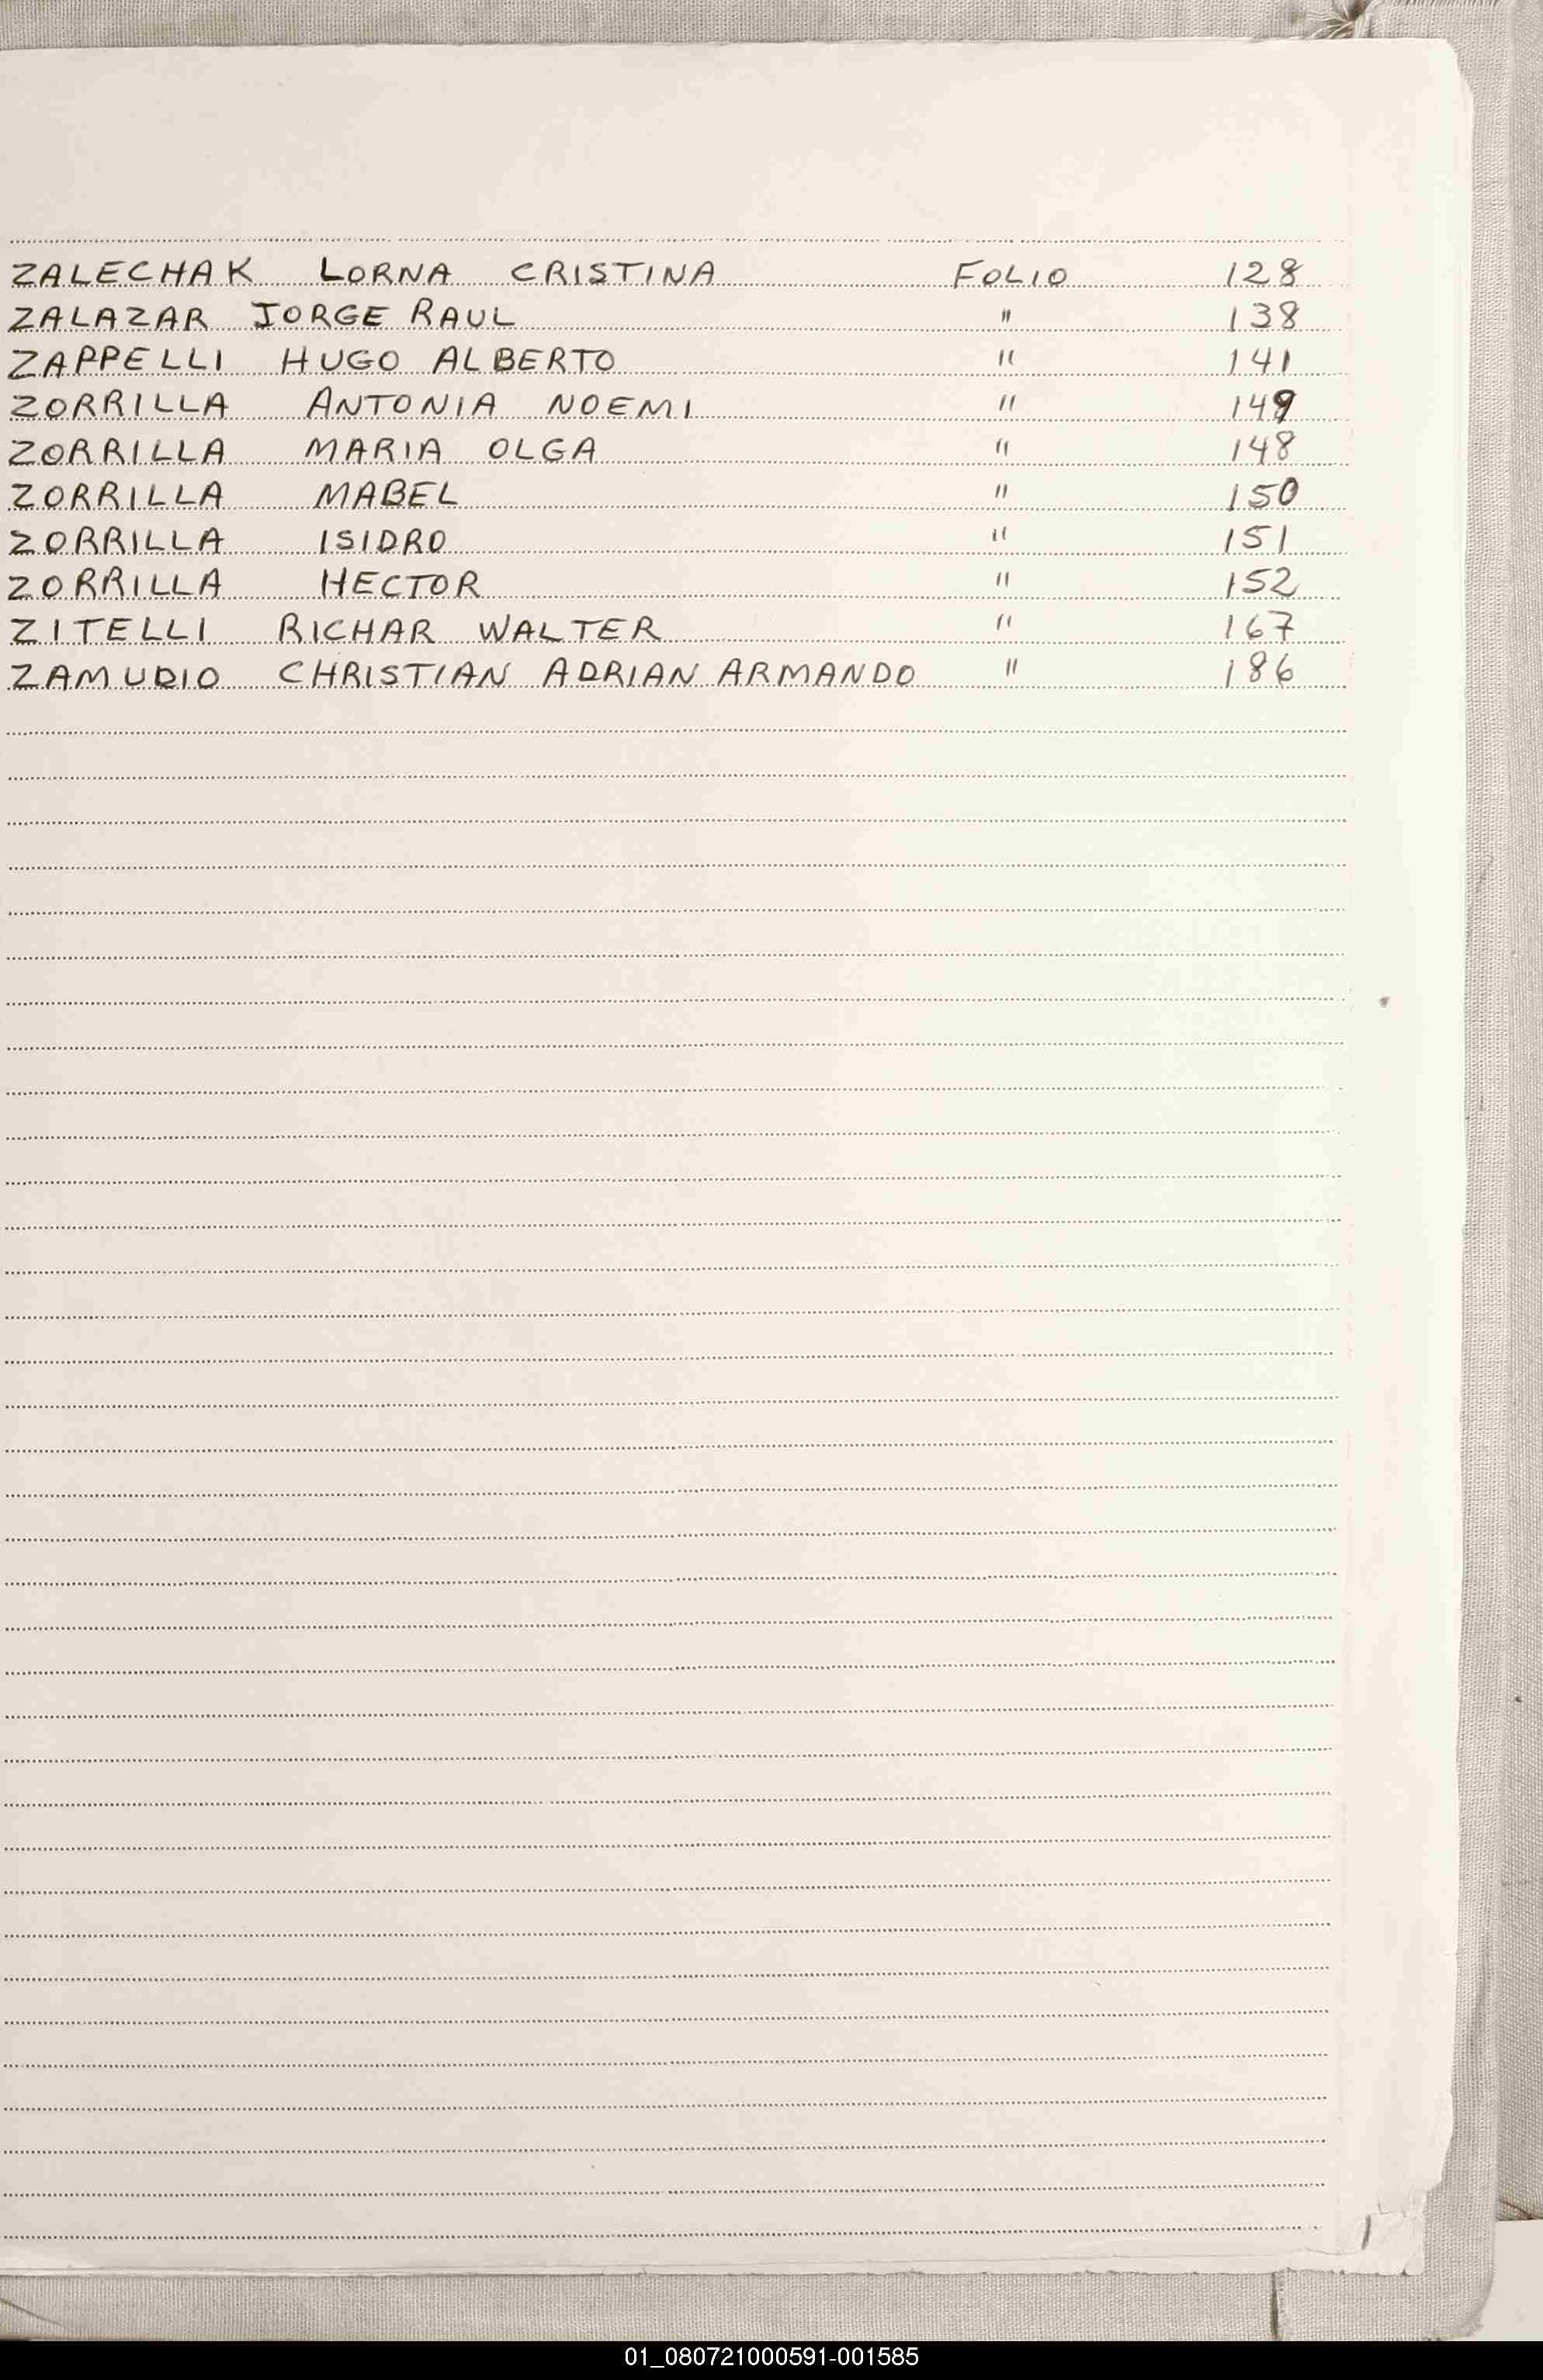 ZALECHAK LORNA CRISTINA FOLIO 128
ZALAZAR JORGE RAUL " 138
ZAPPELLI HUGO ALBERTO " 141
ZORRILLA ANTONIA NOEMI " 149
ZORRILLA MARIA OLGA " 148
ZORRILLA MABEL " 150
ZORRILLA ISIDRO " 151
ZORRILLA HECTOR " 152
ZITELLI RICHAR WALTER " 167
ZAMUDIO CHRISTIAN ADRIAN ARMANDO " 186
01_080721000591-001585